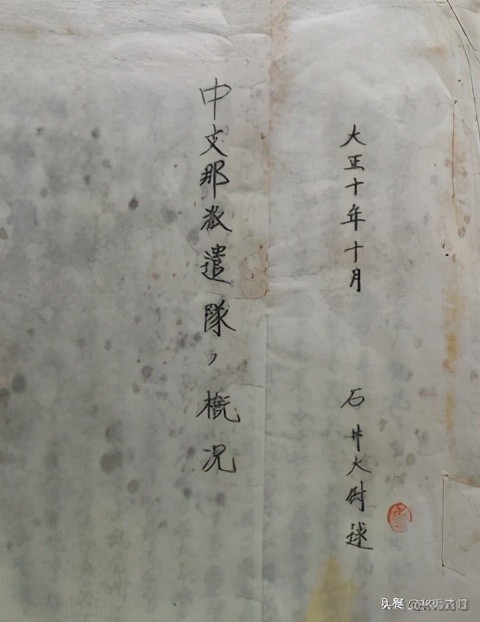 大正十年十月
石井大尉述
中支那派遣隊ノ概況